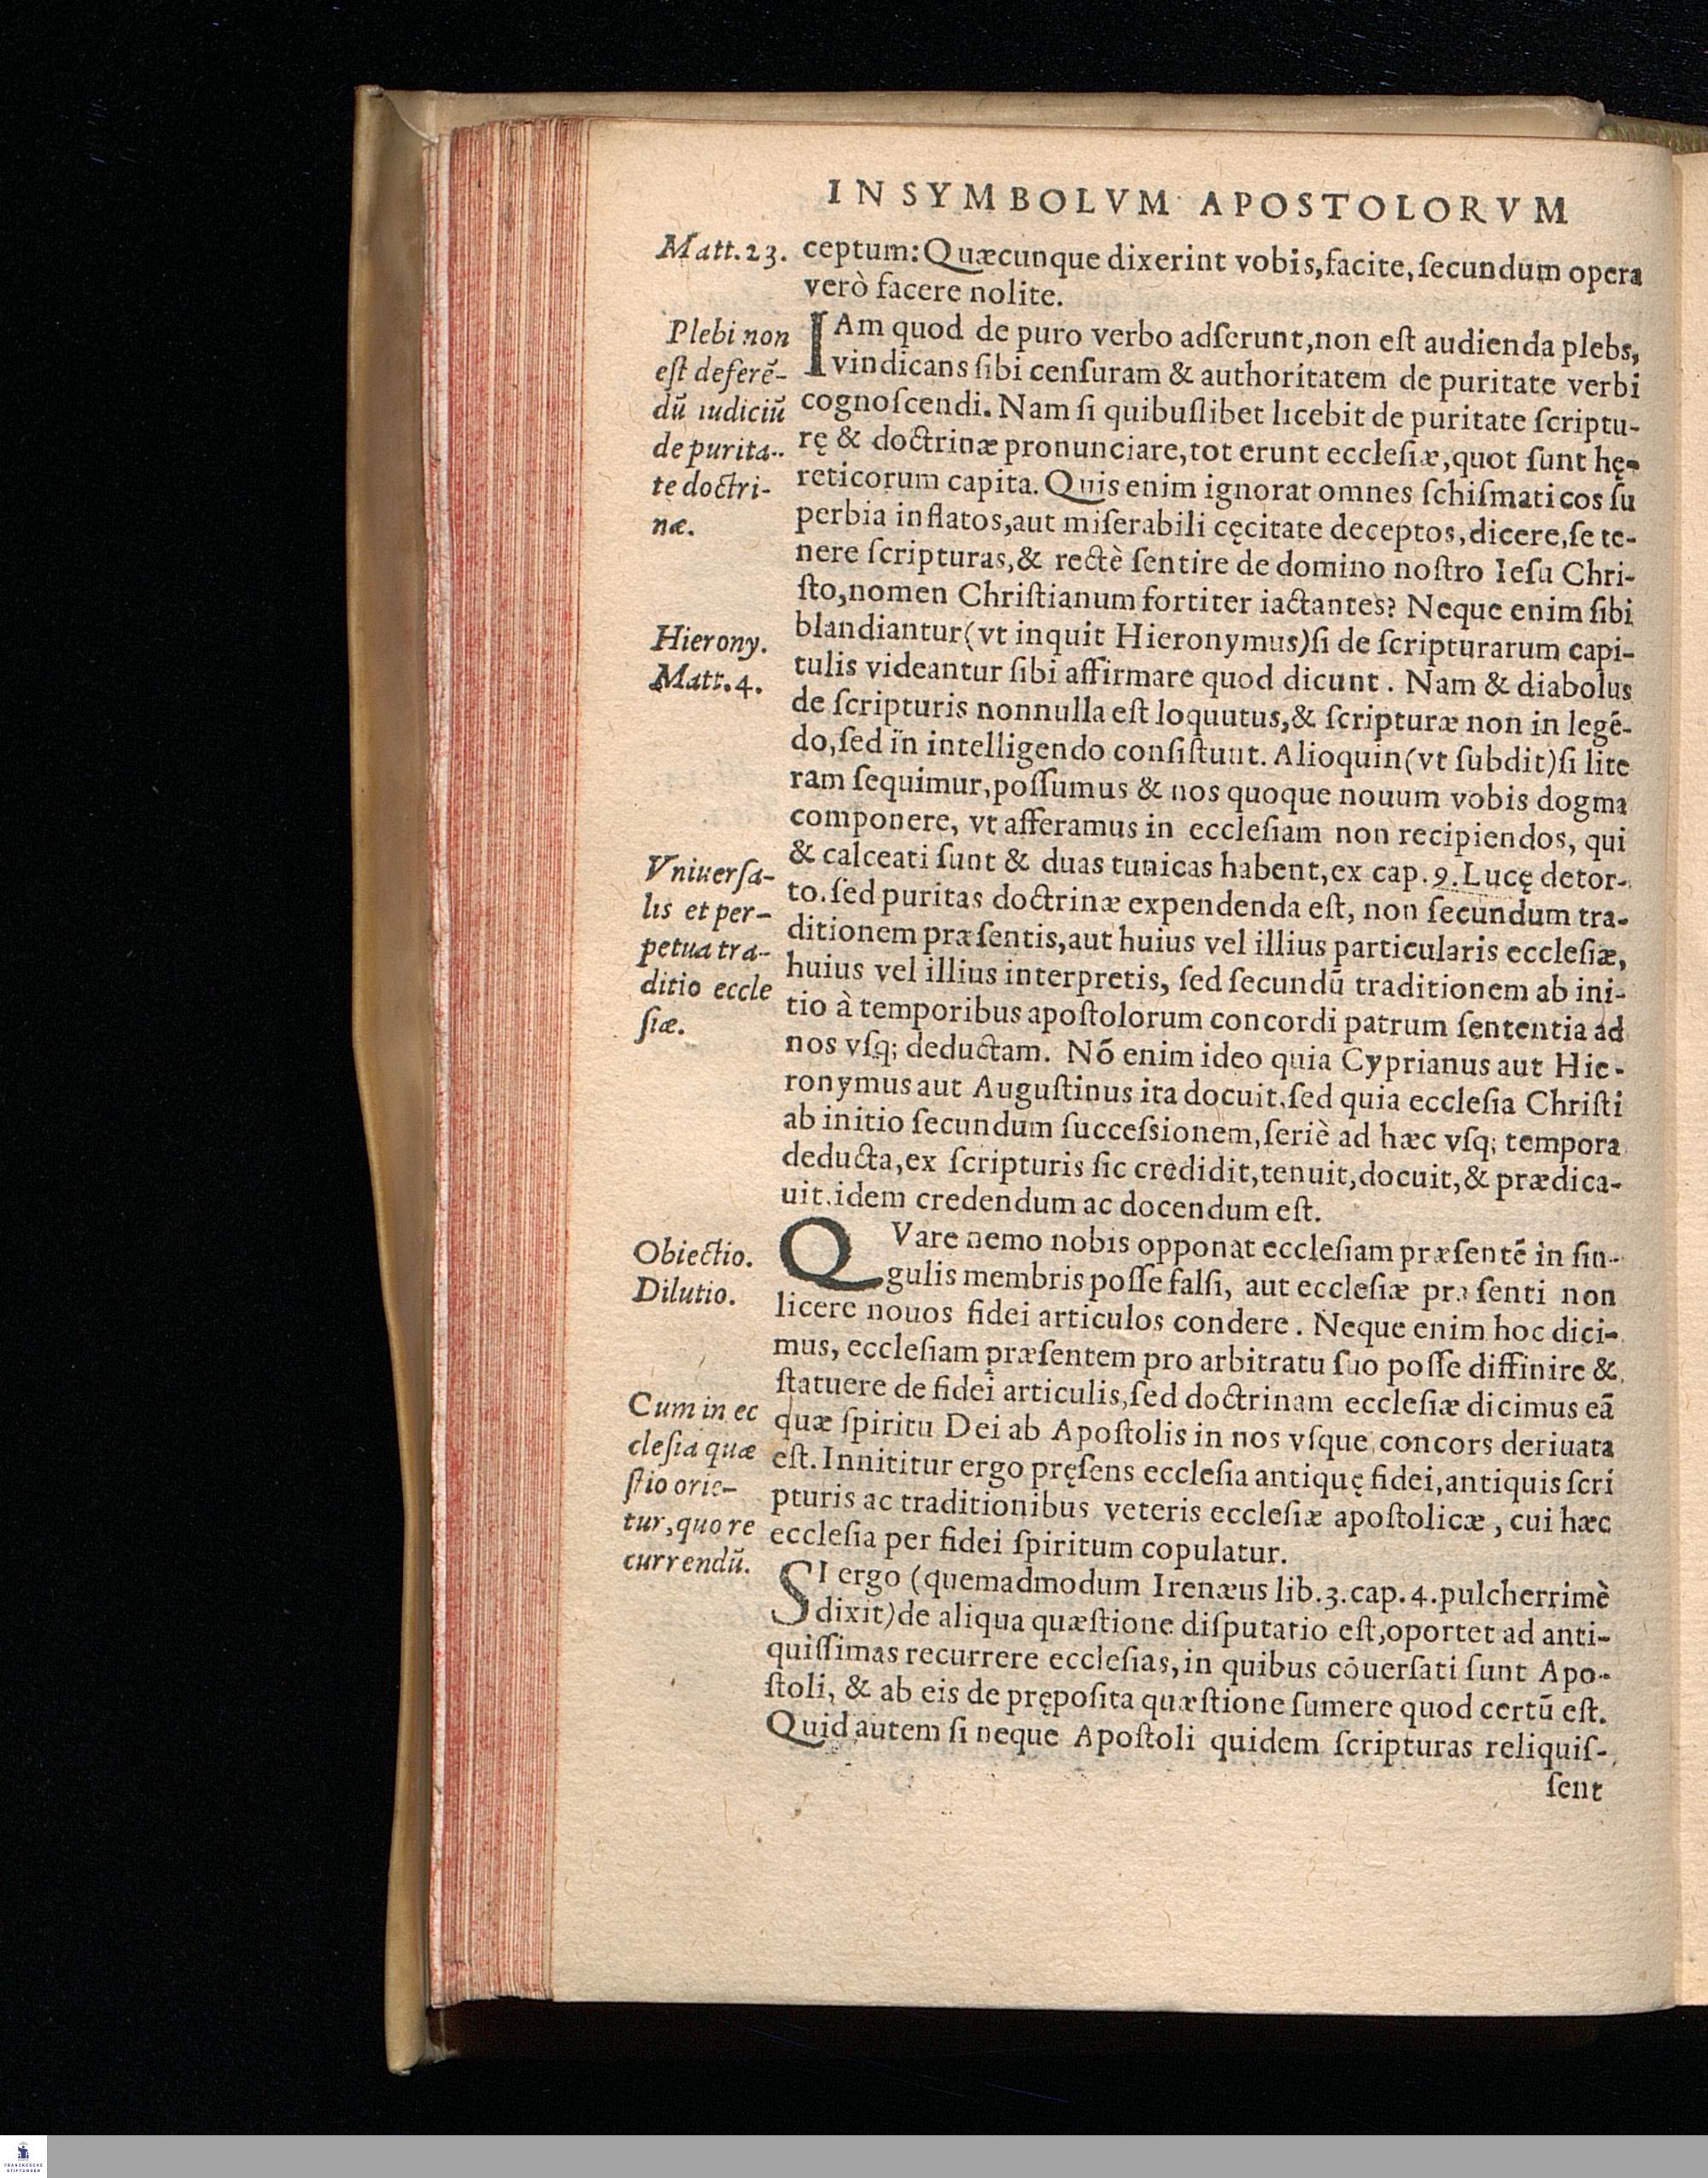 IN SYMBOLVM APOSTOLORVM
Matt. 23.
ceptum: Quæcunque dixerint vobis, facite, ſecundum opera
verò facere nolite.
Plebi non
eſt deferē-
dū iudiciū
de purita-
te doctri-
næ.
IAm quod de puro verbo adſerunt, non eſt audienda plebs,
vindicans ſibi cenſuram & authoritatem de puritate verbi
cognoſcendi. Nam ſi quibuſlibet licebit de puritate ſcriptu-
rę & doctrinæ pronunciare, tot erunt eccleſiæ, quot ſunt hę-
reticorum capita. Quis enim ignorat omnes ſchiſmaticos ſu
perbia inflatos, aut miſerabili cęcitate deceptos, dicere, ſe te-
nere ſcripturas, & rectè ſentire de domino noſtro Ieſu Chri-
ſto, nomen Chriſtianum fortiter iactantes? Neque enim ſibi
Hierony.
Matt. 4.
blandiantur (vt inquit Hieronymus) ſi de ſcripturarum capi-
tulis videantur ſibi affirmare quod dicunt. Nam & diabolus
de ſcripturis nonnulla eſt loquutus, & ſcripturæ non in legē-
do, ſed in intelligendo conſiſtunt. Alioquin (vt ſubdit) ſi lite
ram ſequimur, poſſumus & nos quoque nouum vobis dogma
componere, vt afferamus in eccleſiam non recipiendos, qui
& calceati ſunt & duas tunicas habent, ex cap. 9. Lucę detor-
Vniuerſa-
lis et per-
petua tra-
ditio eccle
ſiæ.
to. ſed puritas doctrinæ expendenda eſt, non ſecundum tra-
ditionem præſentis, aut huius vel illius particularis eccleſiæ,
huius vel illius interpretis, ſed ſecundū traditionem ab ini-
tio à temporibus apoſtolorum concordi patrum ſententia ad
nos vſq; deductam. Nō enim ideo quia Cyprianus aut Hie-
ronymus aut Auguſtinus ita docuit. ſed quia eccleſia Chriſti
ab initio ſecundum ſucceſsionem, ſeriè ad hæc vſq; tempora
deducta, ex ſcripturis ſic credidit, tenuit, docuit, & prædica-
uit. idem credendum ac docendum eſt.
Obiectio.
Dilutio.
QVare nemo nobis opponat eccleſiam præſentē in ſin-
gulis membris poſſe falſi, aut eccleſiæ præſenti non
licere nouos fidei articulos condere. Neque enim hoc dici-
mus, eccleſiam præſentem pro arbitratu ſuo poſſe diffinire &
ſtatuere de fidei articulis, ſed doctrinam eccleſiæ dicimus eā
Cum in ec
cleſia quæ
ſtio orie-
tur, quo re
currendū.
quæ ſpiritu Dei ab Apoſtolis in nos vſque concors deriuata
eſt. Innititur ergo pręſens eccleſia antiquę fidei, antiquis ſcri
pturis ac traditionibus veteris eccleſiæ apoſtolicæ, cui hæc
eccleſia per fidei ſpiritum copulatur.
SI ergo (quemadmodum Irenæus lib. 3. cap. 4. pulcherrimè
dixit) de aliqua quæſtione diſputatio eſt, oportet ad anti-
quiſſimas recurrere eccleſias, in quibus cōuerſati ſunt Apo-
ſtoli, & ab eis de prępoſita quæſtione ſumere quod certū eſt.
Quid autem ſi neque Apoſtoli quidem ſcripturas reliquiſ-
ſent
FRANCKESCHE
STIFTUNGEN